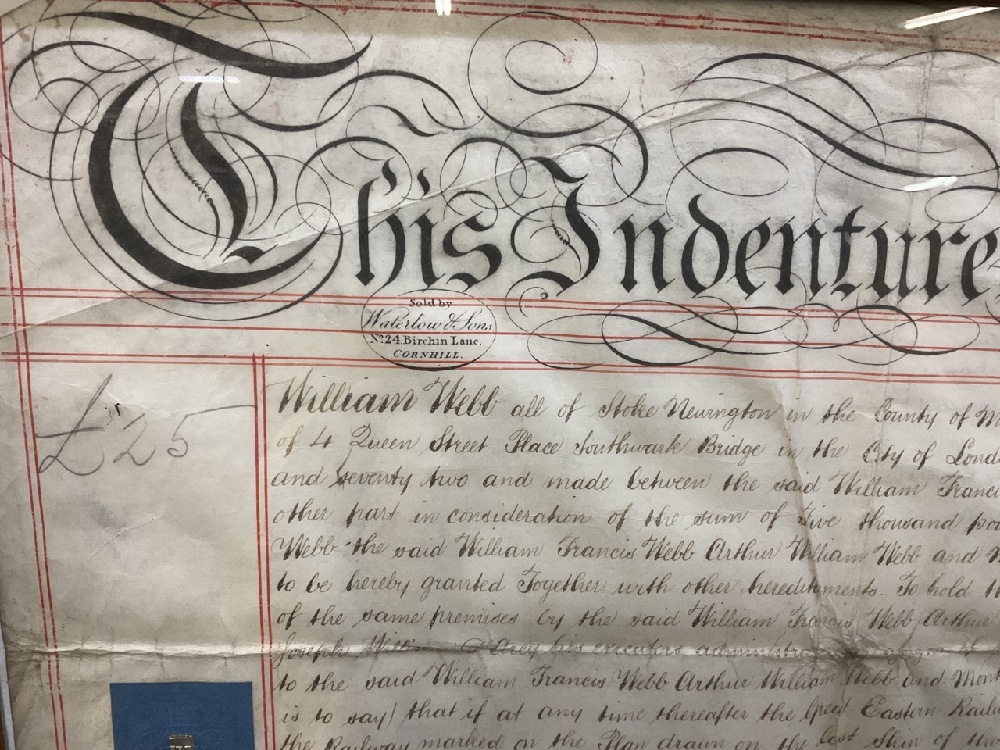 This Indenture
Sold by
Waterlow & Sons
No. 24 Birchin Lane.
CORNHILL.
£25
William Webb all of Stoke Newington in the County of M
of 4 Queen Street Place Southwark Bridge in the City of Lond
and seventy two and made between the said William Franc
other part in consideration of the sum of Five thousand po
Webb the said William Francis Webb Arthur William Webb and
to be hereby granted Together with other hereditments. To hold
of the same premises by the said William Francis Webb Arthur
Joseph his executors
to the said William Francis Webb Arthur William Webb and Mon
is to say) that if at any time thereafter the Great Eastern Railw
the Railway marked on the Plan drawn on the last Skin of